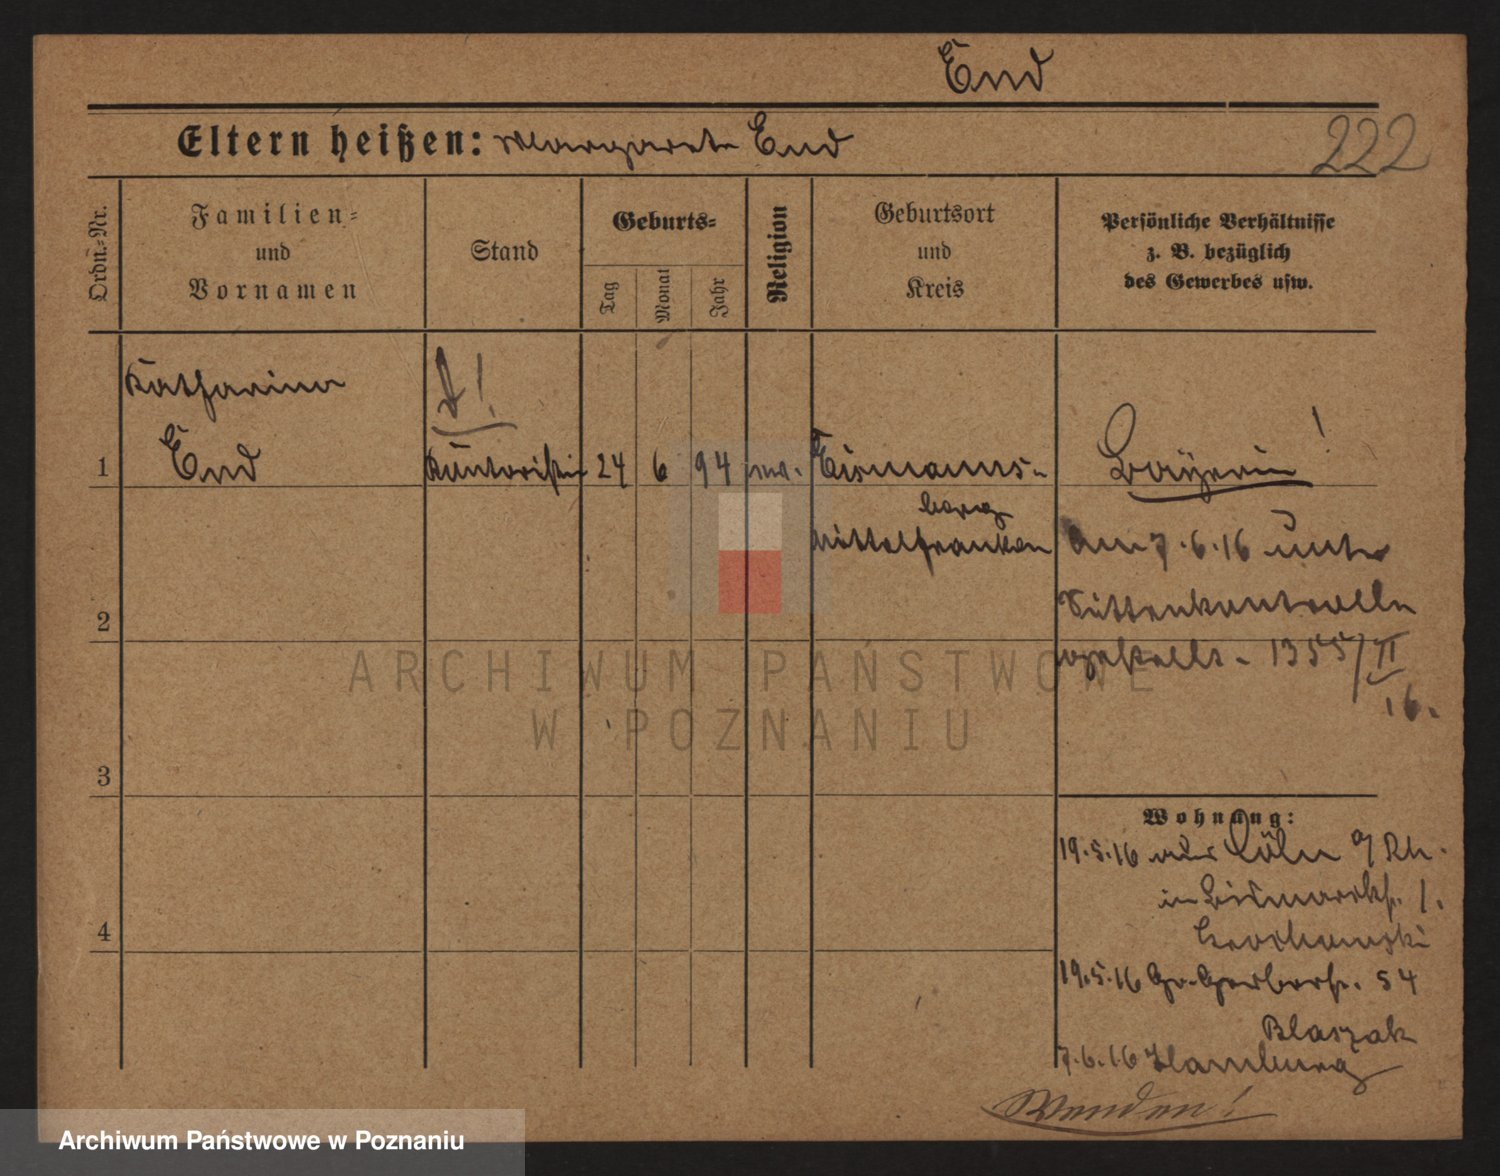 End
Eltern heißen: Margarete End
222
Ordn.=Nr.
Familien=
und
Vornamen
Stand
Geburts=
Tag
Monat
Jahr
Religion
Geburtsort
und
Kreis
Persönliche Verhältnisse
z. B. bezüglich
des Gewerbes usw.
Katharina
End
1
Kontoristin
24
6
94
Eismanns-
berg
Mittelfranken
Bayerin!
Am 7.6.16 unter
Sittenkontrolle
gestellt. 1355/II
16.
2
3
4
ARCHIWUM PAŃSTWOWE
W POZNANIU
Wohnung:
19.5.16 aus Cöln a/Rh.
in Bismarckstr. 1.
19.5.16 Gr. Gerberstr. 54
Blaszak
7.6.16 Hamburg
Wenden!
Archiwum Państwowe w Poznaniu